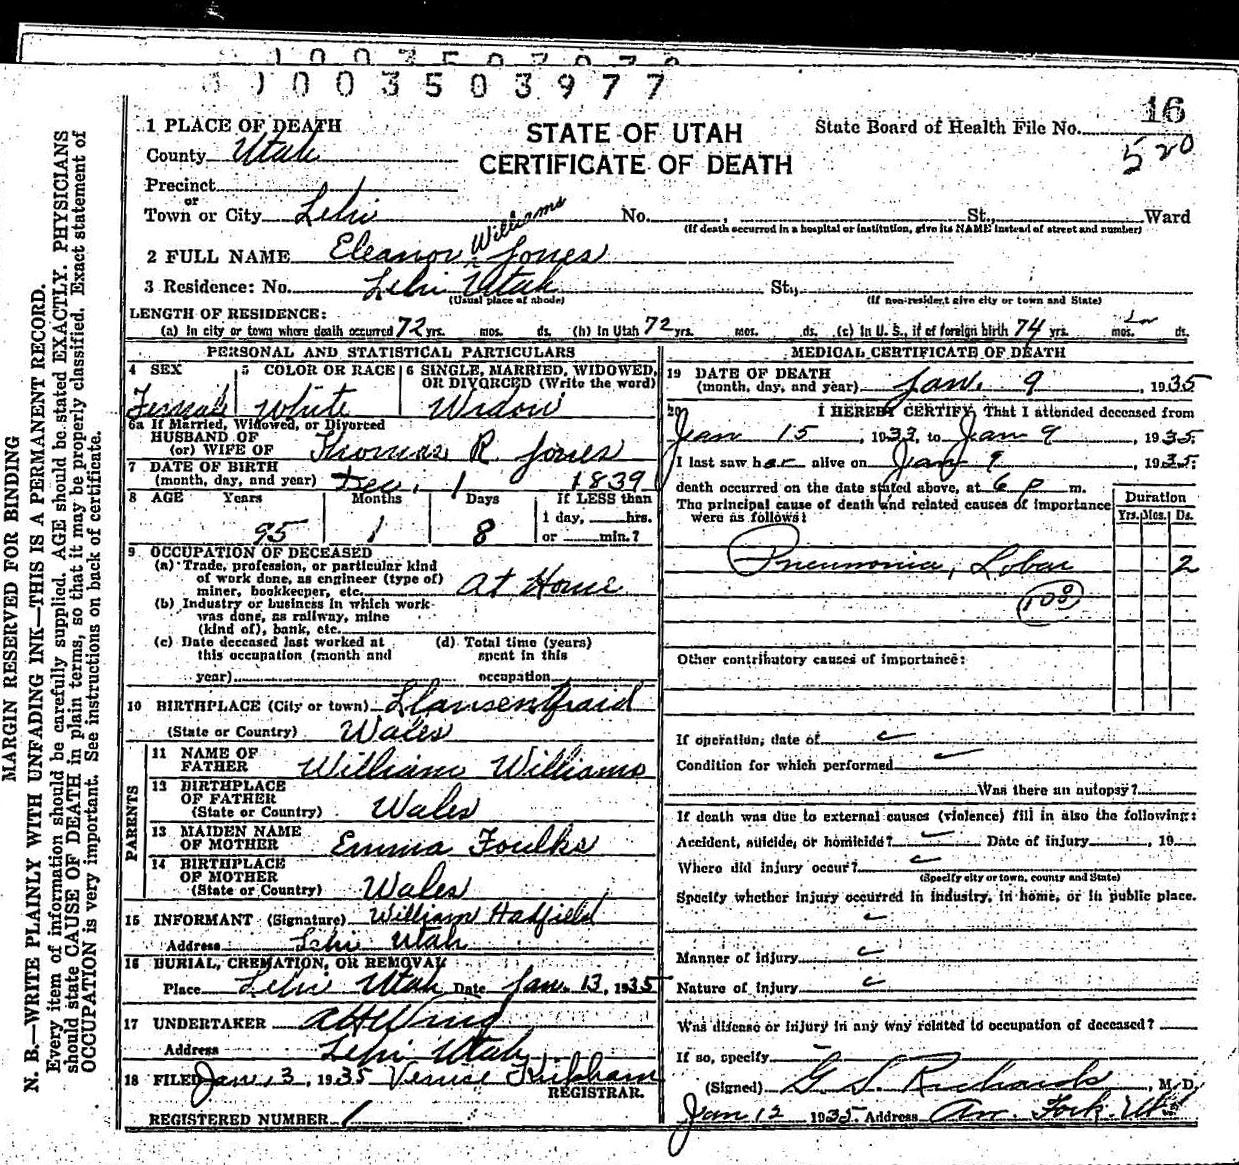 1 0 0 3 5 0 3 9 7 7
16
1 PLACE OF DEATH
STATE OF UTAH
CERTIFICATE OF DEATH
State Board of Health File No.
520
County Utah
Precinct
or
Town or City Lehi No. , St., Ward
(If death occurred in a hospital or institution, give its NAME instead of street and number)
2 FULL NAME Eleanor Williams Jones
3 Residence: No. Lehi Utah St.,
(Usual place of abode) (If non-resident give city or town and State)
LENGTH OF RESIDENCE:
(a) In city or town where death occurred 72 yrs. mos. ds. (b) In Utah 72 yrs. mos. ds. (c) In U. S., if of foreign birth 74 yrs. mos. ds.
PERSONAL AND STATISTICAL PARTICULARS
4 SEX
Female
5 COLOR OR RACE
White
6 SINGLE, MARRIED, WIDOWED, OR DIVORCED (Write the word)
Widow
6a If Married, Widowed, or Divorced
HUSBAND OF
(or) WIFE OF Thomas R Jones
7 DATE OF BIRTH
(month, day, and year) Dec. 1 1839
8 AGE Years Months Days If LESS than
1 day, hrs.
95 1 8 or min.?
9 OCCUPATION OF DECEASED
(a) Trade, profession, or particular kind
of work done, as engineer (type of)
miner, bookkeeper, etc. At Home
(b) Industry or business in which work
was done, as railway, mine
(kind of), bank, etc.
(c) Date deceased last worked at
this occupation (month and
year)
(d) Total time (years)
spent in this
occupation
10 BIRTHPLACE (City or town) Llansenfraid
(State or Country) Wales
PARENTS
11 NAME OF
FATHER William Williams
12 BIRTHPLACE
OF FATHER
(State or Country) Wales
13 MAIDEN NAME
OF MOTHER Emma Foulks
14 BIRTHPLACE
OF MOTHER
(State or Country) Wales
15 INFORMANT (Signature) William Hadfield
Address Lehi Utah
16 BURIAL, CREMATION, OR REMOVAL
Place Lehi Utah Date Jan. 13, 1935
17 UNDERTAKER A H Wing
Address Lehi Utah
18 FILED Jan 13, 1935 Venice Kirkham
REGISTRAR.
REGISTERED NUMBER 1
MEDICAL CERTIFICATE OF DEATH
19 DATE OF DEATH
(month, day, and year) Jan. 9, 1935
20 I HEREBY CERTIFY, That I attended deceased from
Jan 15, 1933, to Jan 9, 1935.
I last saw her alive on Jan 9, 1935.
death occurred on the date stated above, at 6 p m.
The principal cause of death and related causes of importance
were as follows:
Duration
Yrs. Mos. Ds.
Pneumonia, Lobar 2
108
Other contributory causes of importance:
If operation, date of
Condition for which performed
Was there an autopsy?
If death was due to external causes (violence) fill in also the following:
Accident, suicide, or homicide? Date of injury , 19
Where did injury occur?
(Specify city or town, county and State)
Specify whether injury occurred in industry, in home, or in public place.
Manner of injury
Nature of injury
Was disease or injury in any way related to occupation of deceased?
If so, specify
(Signed) G S Richards, M. D.
Jan 12 1935 Address Am. Fork. Utah
MARGIN RESERVED FOR BINDING
N. B.—WRITE PLAINLY WITH UNFADING INK—THIS IS A PERMANENT RECORD.
Every item of information should be carefully supplied. AGE should be stated EXACTLY. PHYSICIANS
should state CAUSE OF DEATH in plain terms, so that it may be properly classified. Exact statement of
OCCUPATION is very important. See instructions on back of certificate.